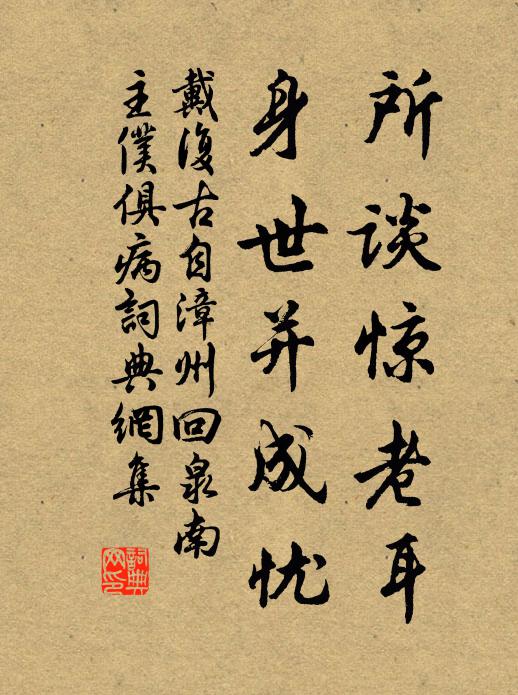 所谈惊老耳
身世并成忧
戴復古自漳州回泉南
主僕俱病詞典網集
詞典网印